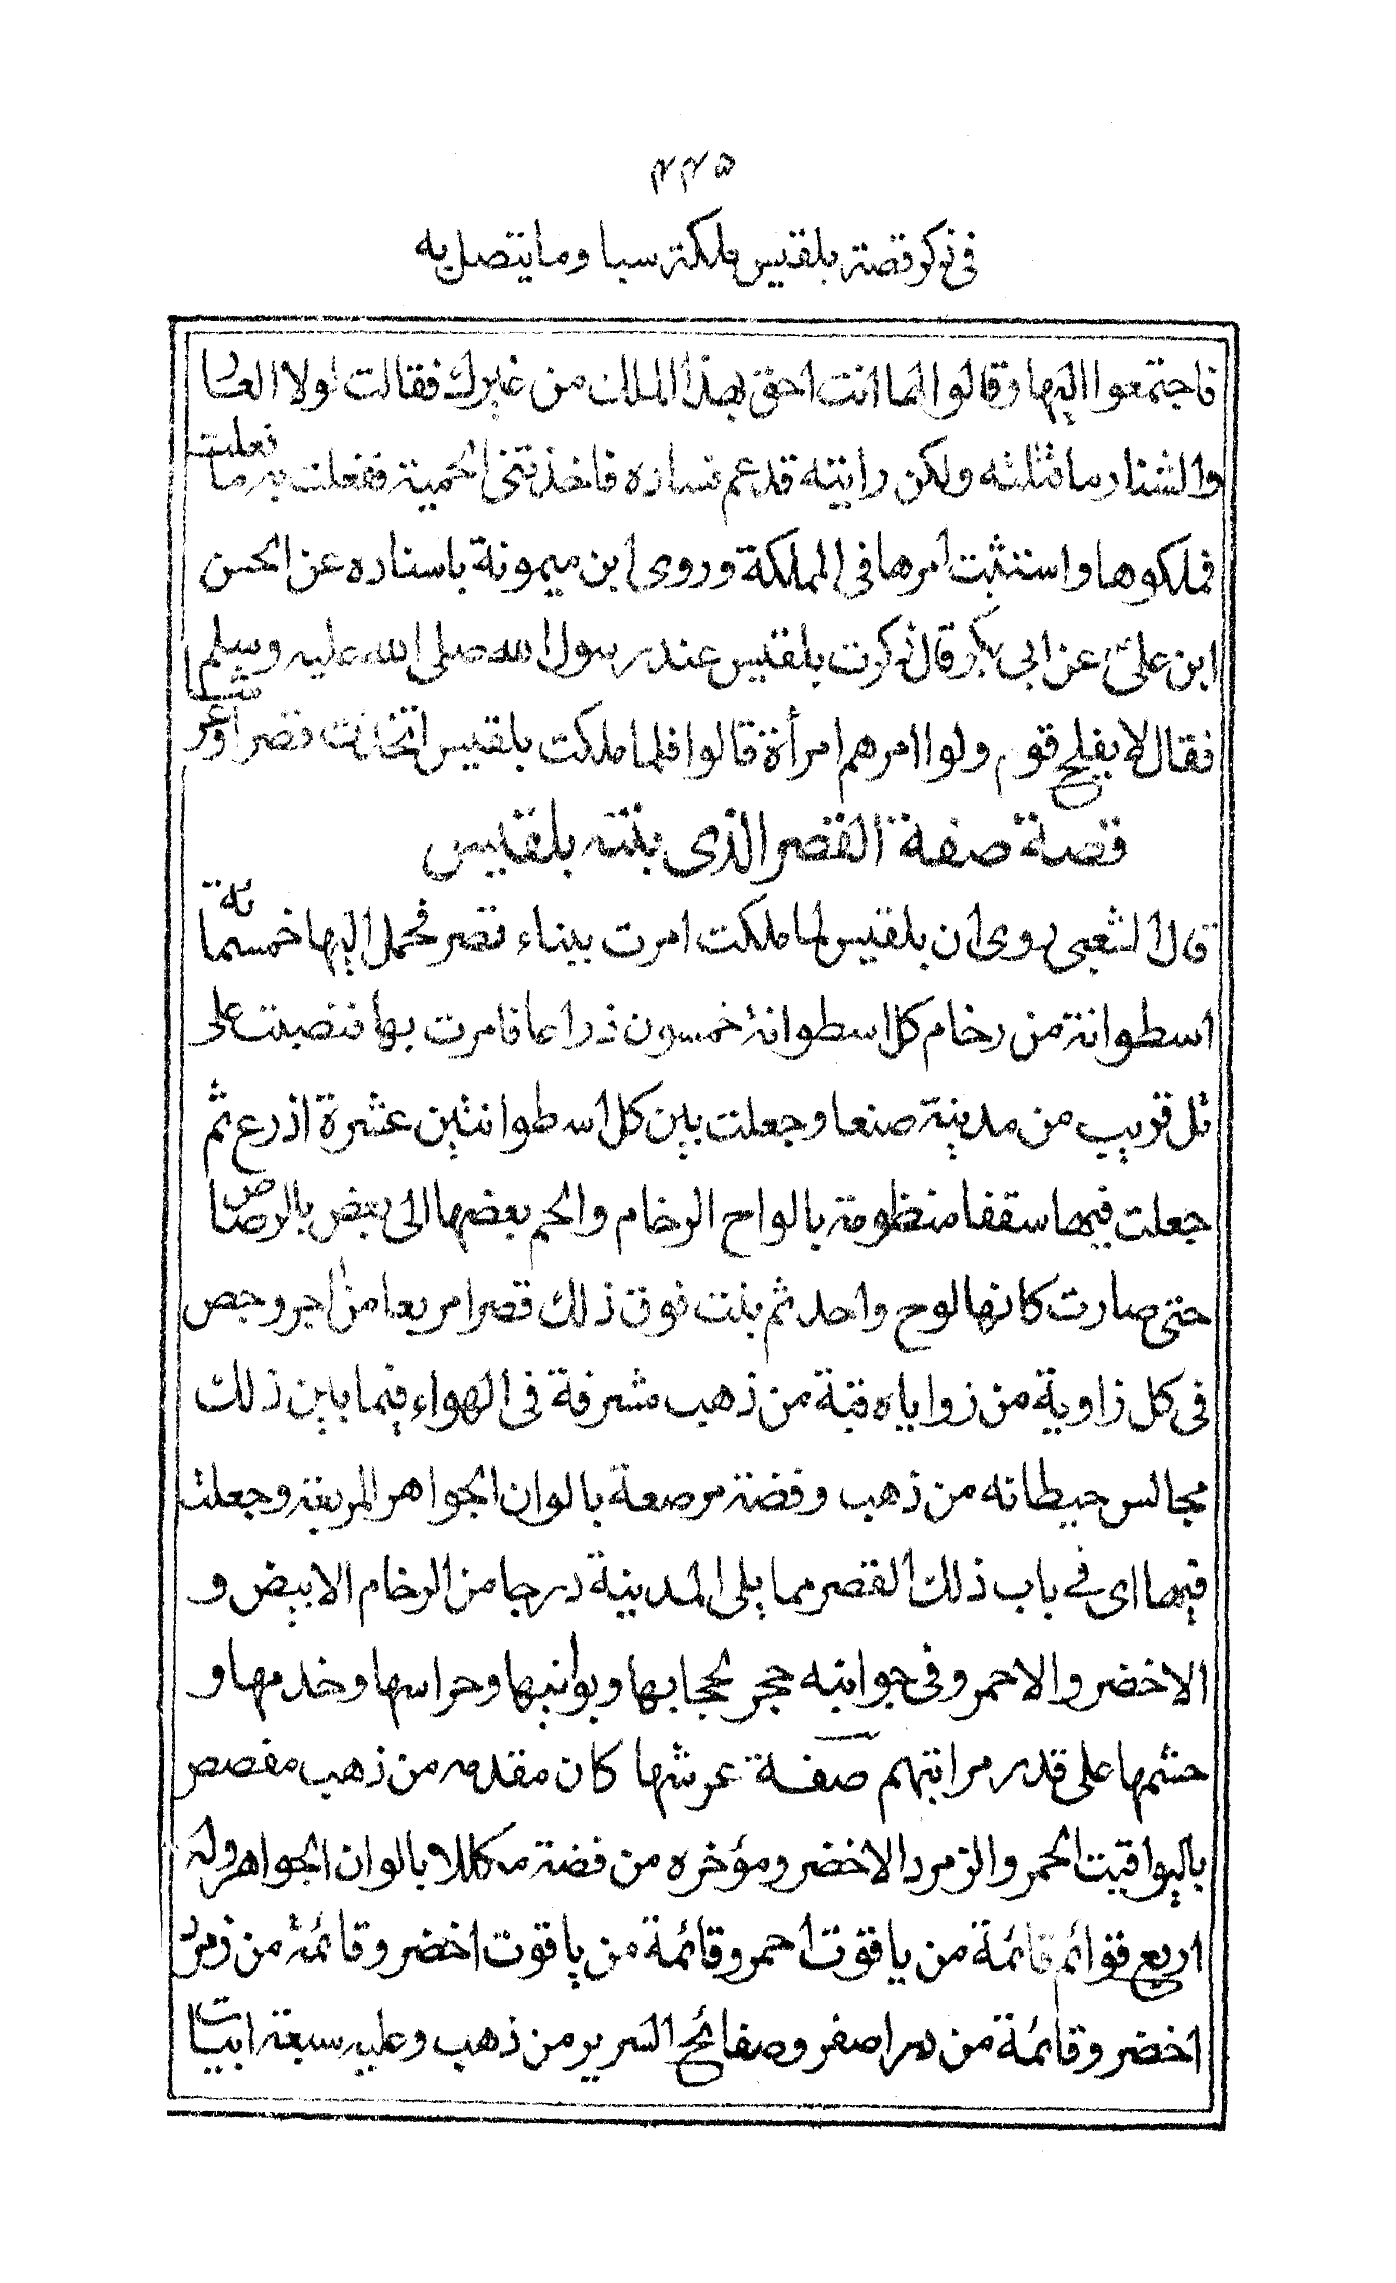 ۴۴۵
فى ذكر قصة بلقيس ملكة سبا وما يتصل به
فاجتمعوا اليها وقالوا لها انت احق بهذا الملك من غيرك فقالت لولا العار
والشنار ما قتلته ولكن رايته قد عم فساده فاخذتنى الحمية ففعلت به ما فعلت
فملكوها واستثبت امرها فى المملكة وروى ابن ميمونة باسناده عن الحسن
ابن على عن ابى بكر قال ذكرت بلقيس عند رسول الله صلى الله عليه وسلم
فقال لا يفلح قوم ولوا امرهم امرأة قالوا فلما ملكت بلقيس اتخذت قصرا وعرشا
قصة صفة القصر الذى بنته بلقيس
قال الشعبى روى ان بلقيس لما ملكت امرت ببناء قصر فحمل اليها خمسمائة
اسطوانة من رخام كل اسطوانة خمسون ذراعا فامرت بها فنصبت على
تل قريب من مدينة صنعا وجعلت بين كل اسطوانتين عشرة اذرع ثم
جعلت فيها سقفا منظومة بالواح الرخام والحم بعضها الى بعض بالرصاص
حتى صارت كانها لوح واحد ثم بنت فوق ذلك قصرا مربعا من اجر وجص
فى كل زاوية من زواياه قبة من ذهب مشرفة فى الهواء فيما بين ذلك
مجالس حيطانه من ذهب وفضة مرصعة بالوان الجواهر المربعة وجعلت
فيها اى فى باب ذلك القصر مما يلى المدينة درجا من الرخام الابيض و
الاخضر والاحمر وفى جوانبه حجر لحجابها وبوابيها وحراسها وخدمها و
حشمها على قدر مراتبهم صفة عرشها كان مقدمه من ذهب مفصص
باليواقيت الحمر والزمرد الاخضر ومؤخره من فضة مكللا بالوان الجواهر وله
اربع قوائم قائمة من ياقوت احمر وقائمة من ياقوت اخضر وقائمة من زمرد
اخضر وقائمة من در اصفر وصفائح السرير من ذهب وعليه سبعة ابيات